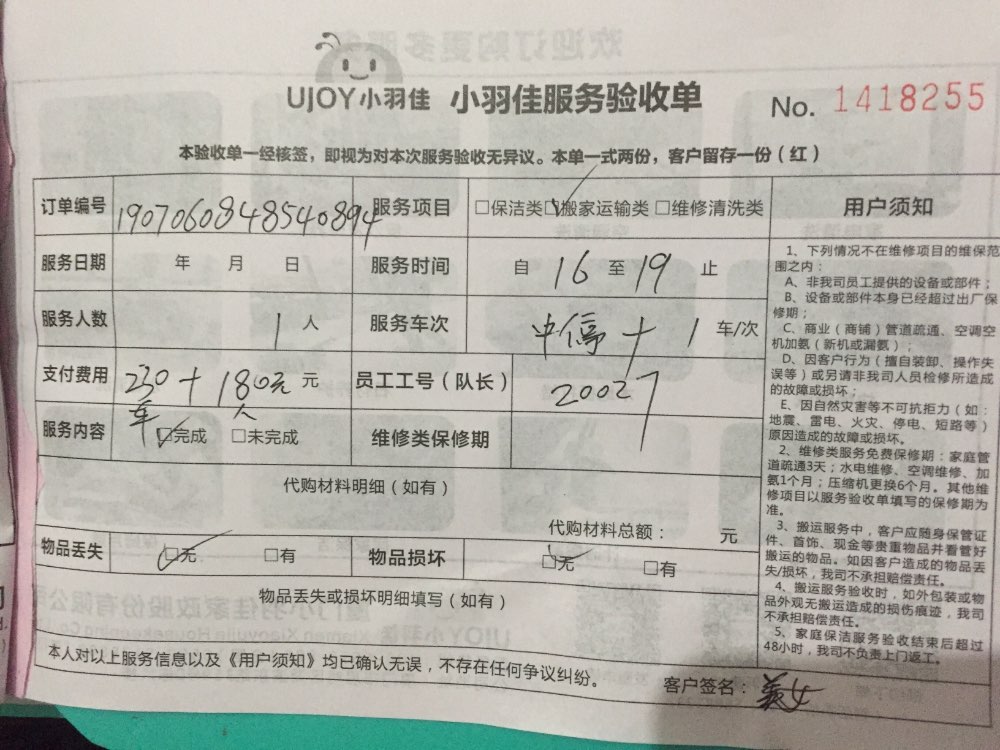 UJOY小羽佳 小羽佳服务验收单 No. 1418255
本验收单一经核签，即视为对本次服务验收无异议。本单一式两份，客户留存一份（红）
订单编号 190706084854089４ 服务项目 □保洁类 ☑搬家运输类 □维修清洗类
服务日期 年 月 日 服务时间 自 16 至 19 止
服务人数 1 人 服务车次 中停 + 1 车/次
支付费用 230 + 180元 元 员工工号（队长） 20027
车 人
服务内容 ☑完成 □未完成 维修类保修期
代购材料明细（如有）
代购材料总额： 元
物品丢失 ☑无 □有 物品损坏 ☑无 □有
物品丢失或损坏明细填写（如有）
本人对以上服务信息以及《用户须知》均已确认无误，不存在任何争议纠纷。
客户签名：
用户须知
1、下列情况不在维修项目的维保范
围之内：
A、非我司员工提供的设备或部件；
B、设备或部件本身已经超过出厂保
修期；
C、商业（商铺）管道疏通、空调空
机加氨（新机或漏氨）；
D、因客户行为（擅自装卸、操作失
误等）或另请非我司人员检修所造成
的故障或损坏；
E、因自然灾害等不可抗拒力（如：
地震、雷电、火灾、停电、短路等）
原因造成的故障或损坏。
2、维修类服务免费保修期：家庭管
道疏通3天；水电维修、空调维修、加
氨1个月；压缩机更换6个月。其他维
修项目以服务验收单填写的保修期为
准。
3、搬运服务中，客户应随身保管证
件、首饰、现金等贵重物品并看管好
搬运的物品。如因客户造成的物品丢
失/损坏，我司不承担赔偿责任。
4、搬运服务验收时，如外包装或物
品外观无搬运造成的损伤痕迹，我司
不承担赔偿责任。
5、家庭保洁服务验收结束后超过
48小时，我司不负责上门返工。